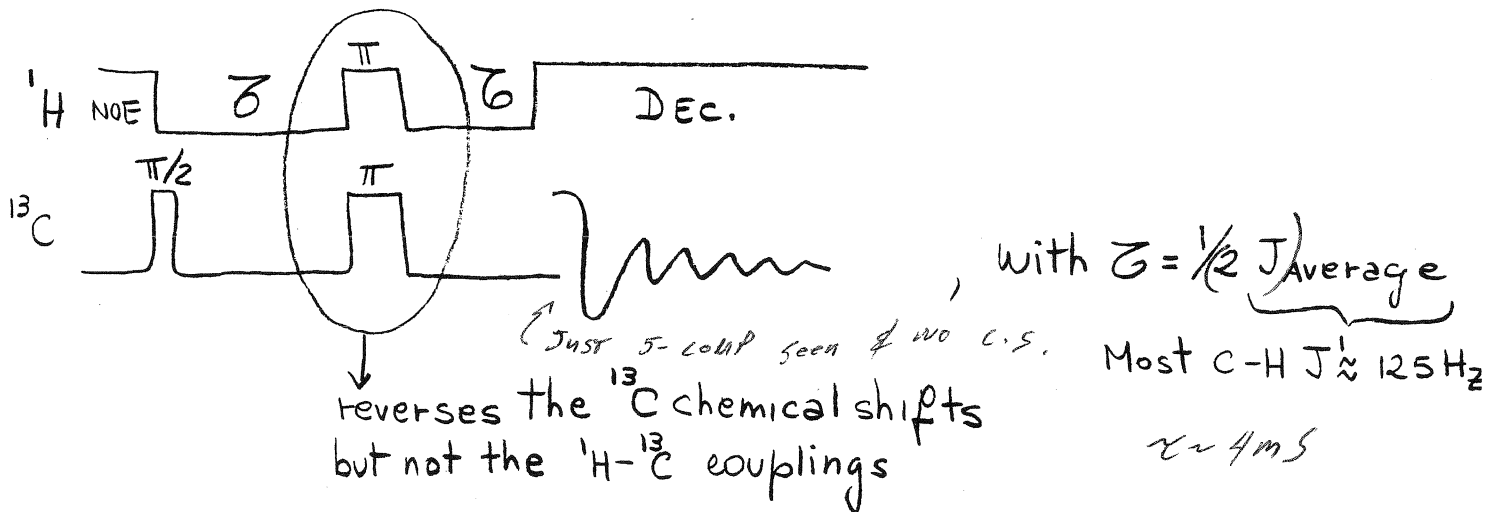 π
¹H NOE τ τ DEC.
π/2 π
¹³C
, with τ = 1/2 J)Average
Just J-coup seen & no c.s.
Most C-H J's ≈ 125 Hz
reverses the ¹³C chemical shifts
but not the ¹H-¹³C couplings
τ ~ 4ms